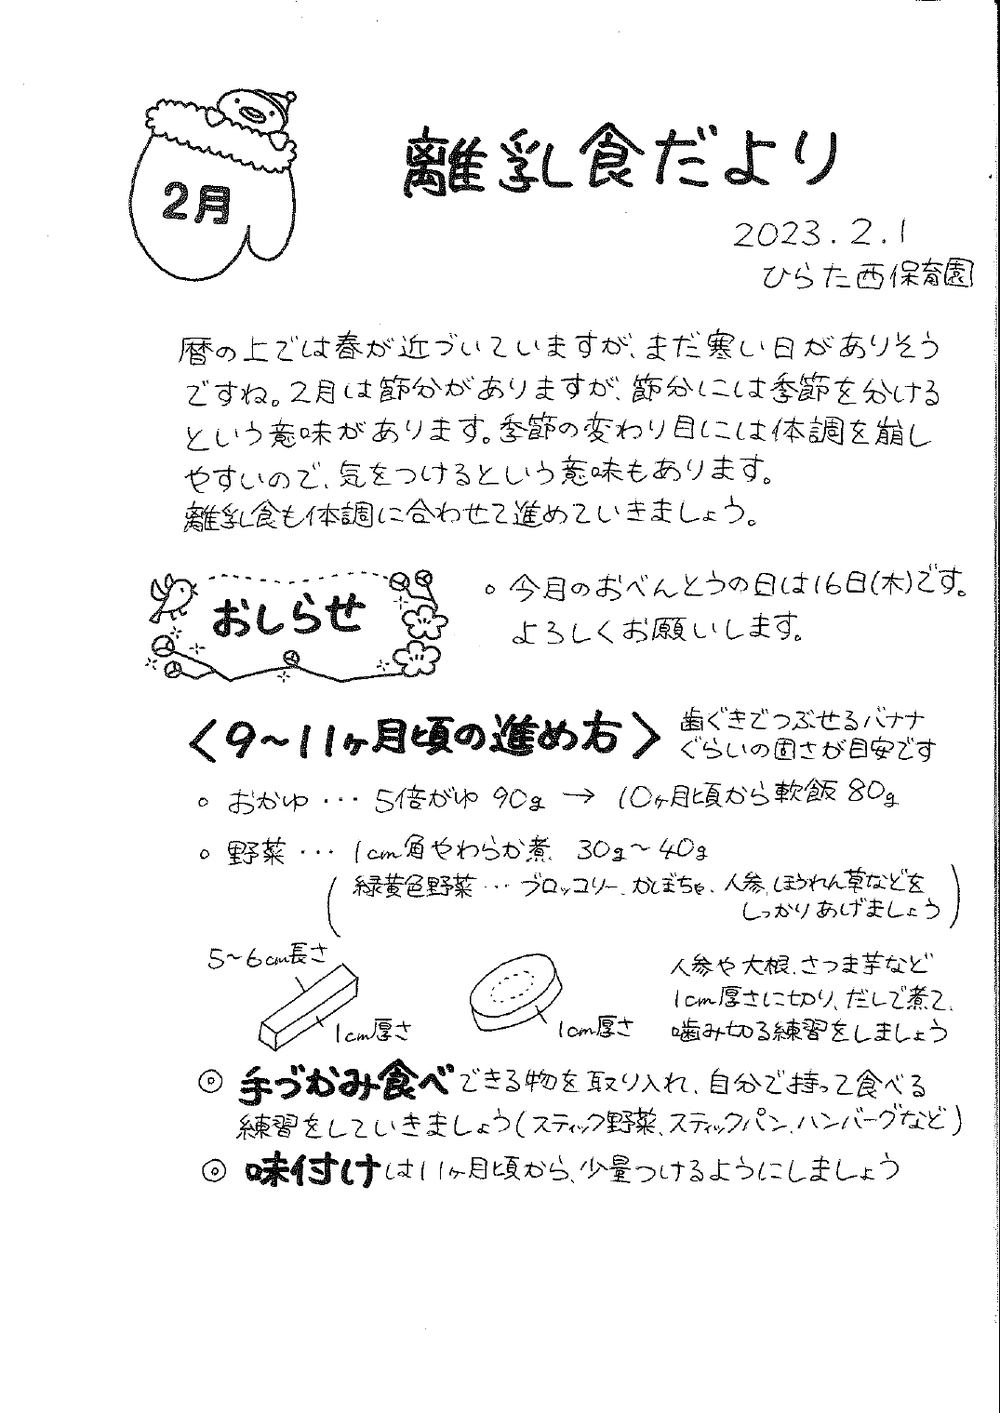 2月
離乳食だより
2023.2.1
ひらた西保育園
暦の上では春が近づいていますが、まだ寒い日がありそう
ですね。2月は節分がありますが、節分には季節を分ける
という意味があります。季節の変わり目には体調を崩し
やすいので、気をつけるという意味もあります。
離乳食も体調に合わせて進めていきましょう。
おしらせ
○ 今月のおべんとうの日は16日(木)です。
よろしくお願いします。
〈9〜11ヶ月頃の進め方〉
歯ぐきでつぶせるバナナ
ぐらいの固さが目安です
○ おかゆ … 5倍がゆ 90g → 10ヶ月頃から軟飯 80g
○ 野菜 … 1cm角やわらか煮 30g〜40g
(緑黄色野菜 … ブロッコリー、かぼちゃ、人参、ほうれん草などを
しっかりあげましょう)
5〜6cm長さ
1cm厚さ
1cm厚さ
人参や大根、さつま芋など
1cm厚さに切り、だしで煮て、
噛み切る練習をしましょう
◎ 手づかみ食べできる物を取り入れ、自分で持って食べる
練習をしていきましょう(スティック野菜、スティックパン、ハンバーグなど)
◎ 味付けは11ヶ月頃から、少量つけるようにしましょう